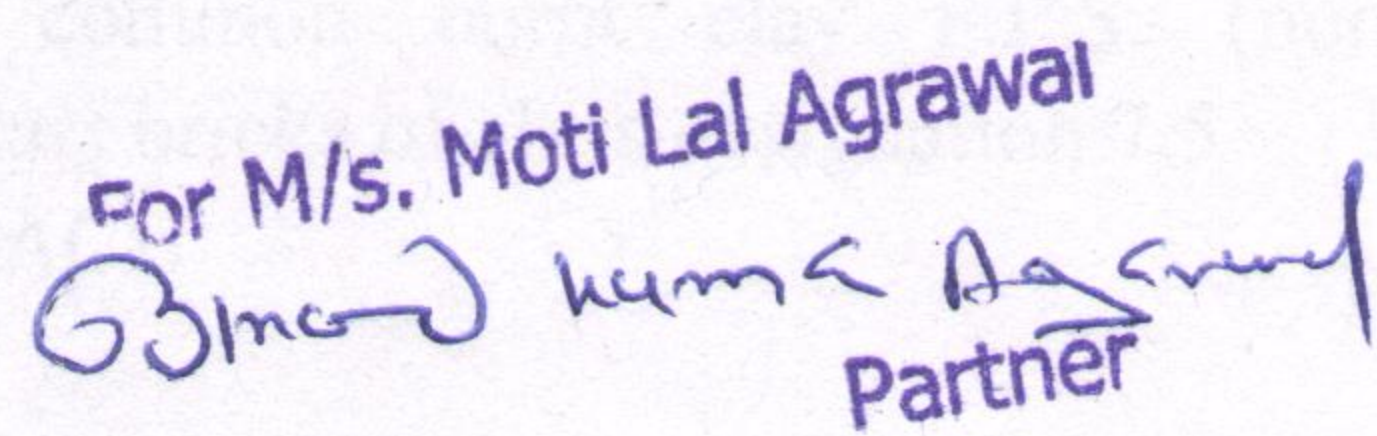 For M/s. Moti Lal Agrawal
Kumar Agrawal
Partner